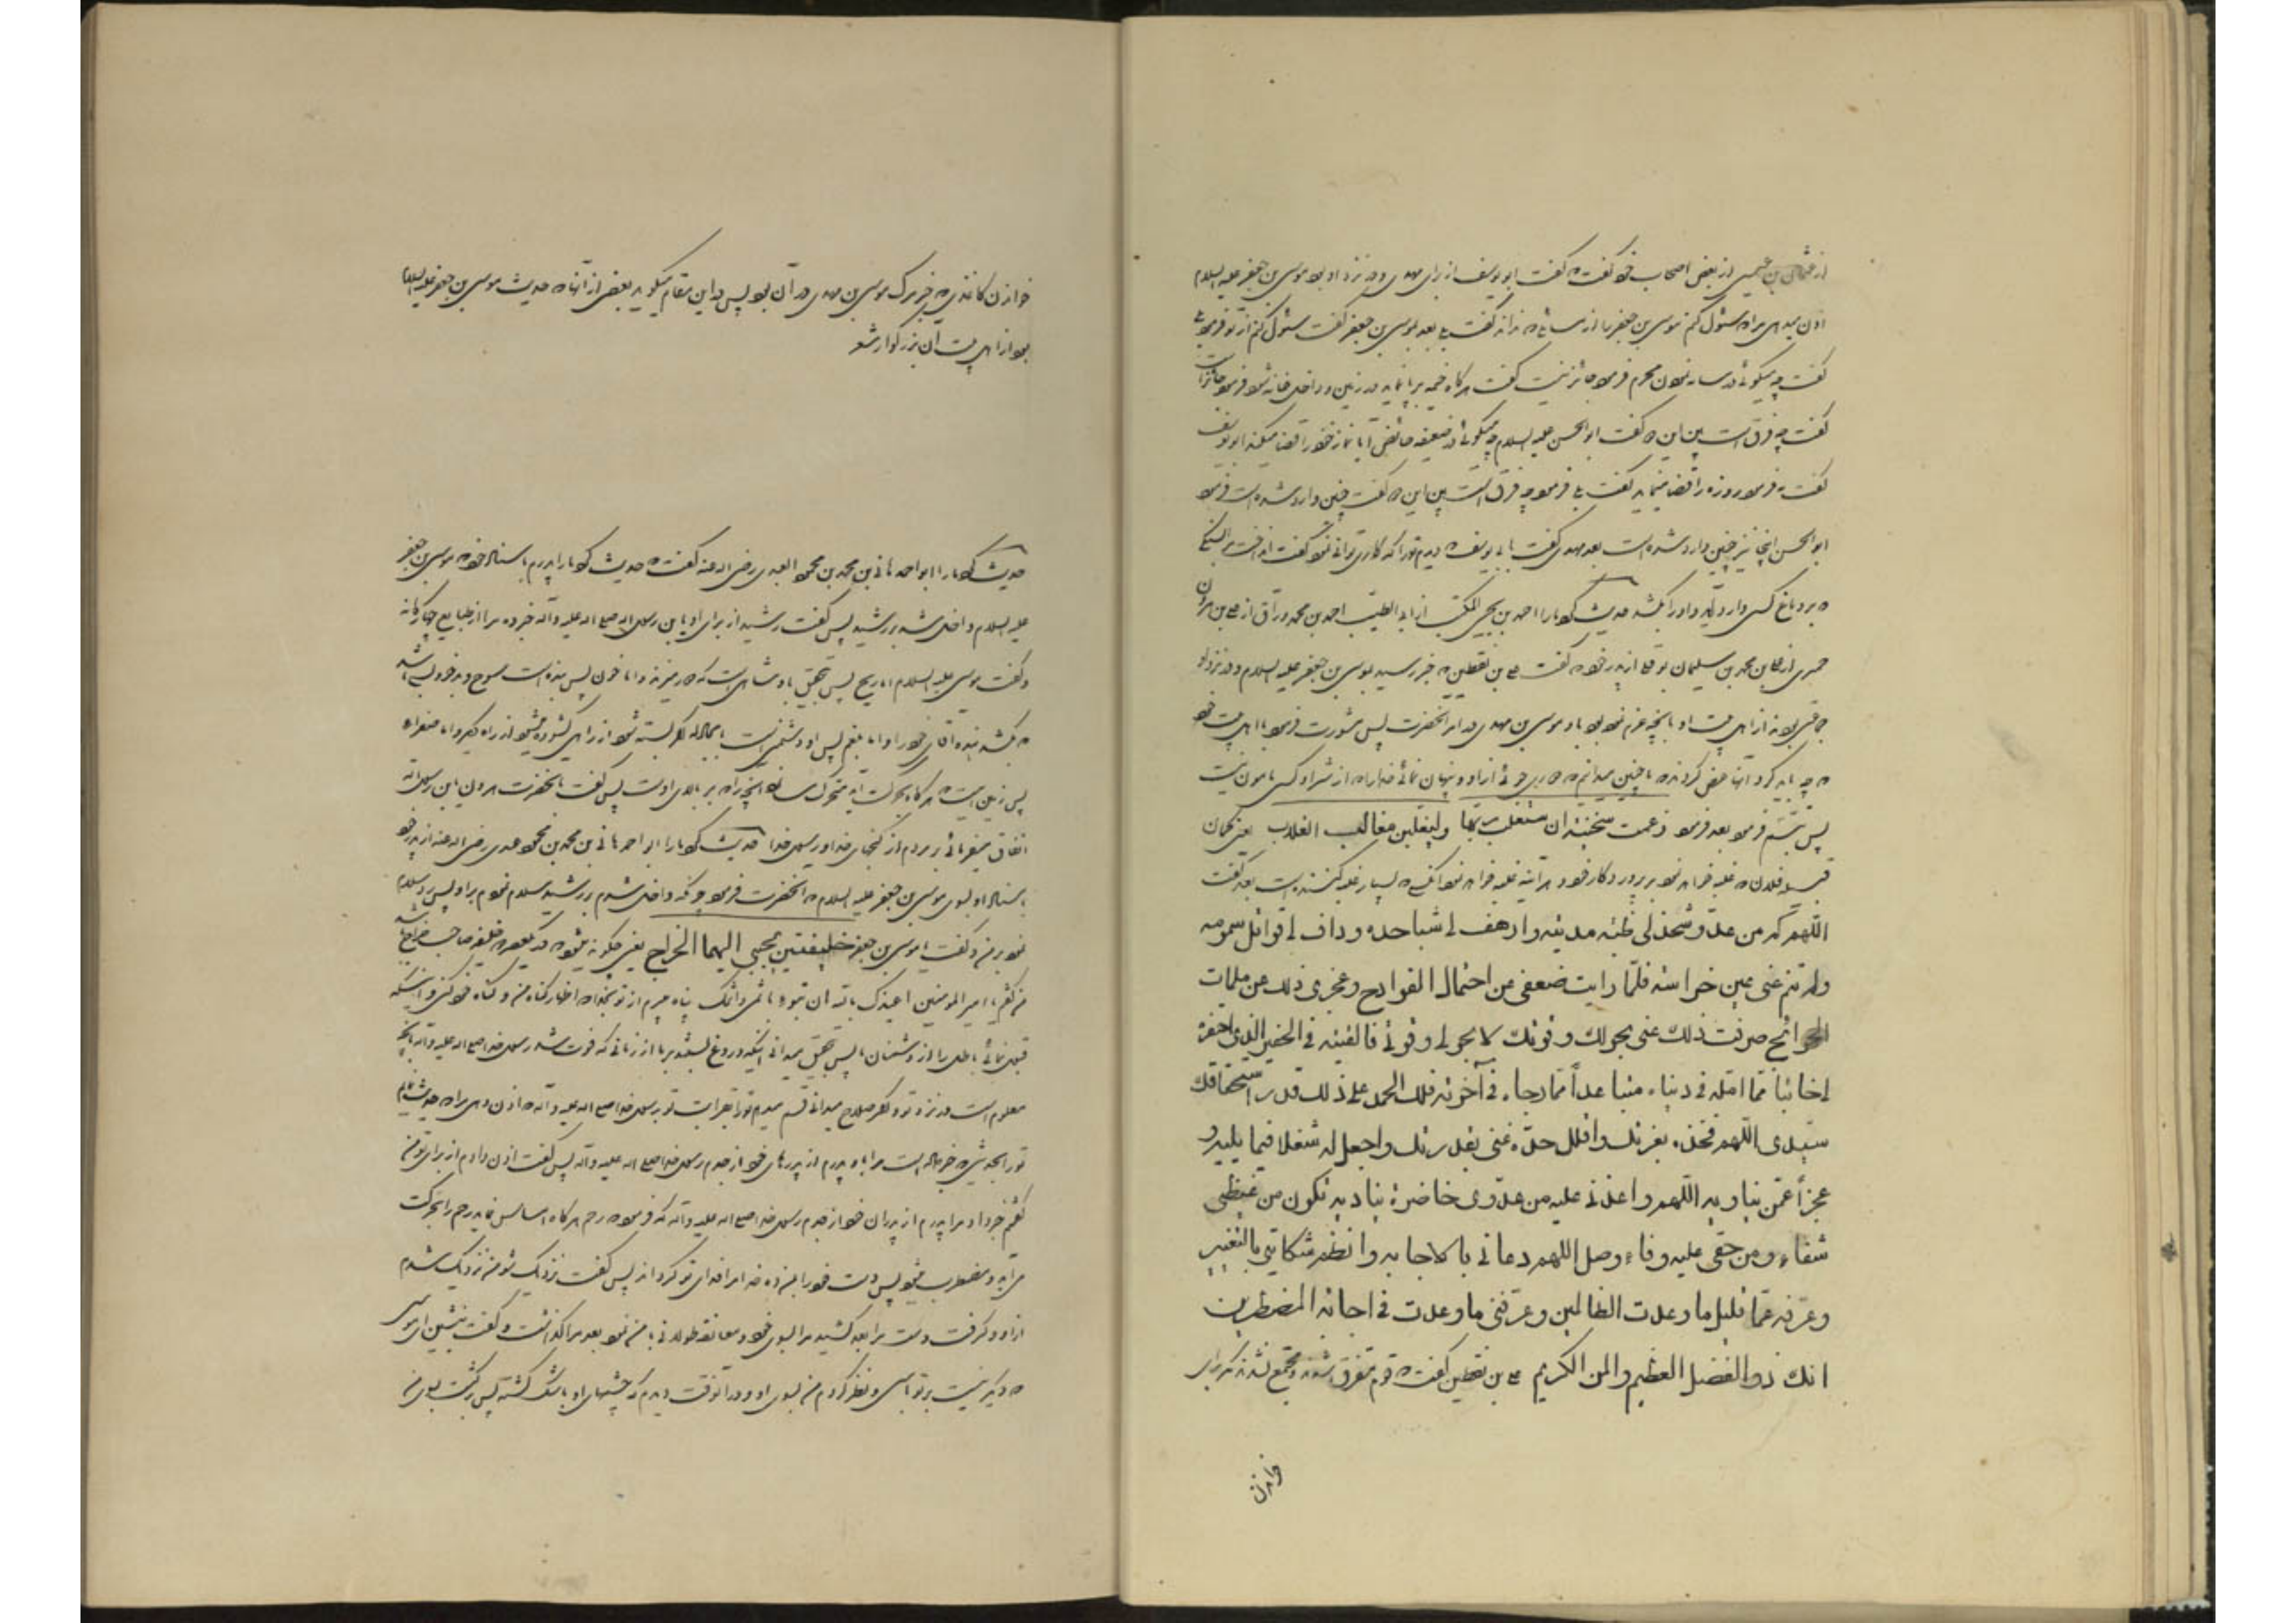 از عثمان بن عیسی از بعض اصحاب خود گفت که گفت ابو یوسف از برای مهدی و در نزد او بود موسی بن جعفر علیه السلام
اذن میدهی مرا که سئوال کنم موسی بن جعفر را از مسائلی که نداند گفت بلی بعد بموسی بن جعفر گفت سئوال کنم از تو فرمود بلی
گفت چه میگوئی در سایه نمودن محرم فرمود جائز نیست گفت هرگاه خیمه برپا نماید در زمین و داخل خانه شود فرمود جائز است
گفت چه فرق است بین این دو گفت ابو الحسن علیه السلام چه میگوئی در ضعیفه حائض آیا نماز خود را قضا میکند ابو یوسف
گفت نه فرمود روزه را قضا مینماید گفت بلی فرمود چه فرق است بین این دو گفت چنین وارد شده است فرمود
ابو الحسن اینجا نیز چنین وارد شده است بعد مهدی گفت بابی یوسف ندیدم تو را که کاری توانی نمود گفت انداخت مرا بسنگی
که بر دماغ کسی وارد آید و او را بکشد حدیث کرد ما را احمد بن یحیی المکتب از ابو الطیب احمد بن محمد وراق از علی بن هرون
حمیری از علی بن محمد بن سلیمان نوفلی از پدر خود که گفت علی بن یقطین که خبر رسید بموسی بن جعفر علیه السلام و در نزد او
جماعتی بودند از اهل بیت او بآنچه عزم نموده بود موسی بن مهدی در امر آنحضرت پس مشورت فرمود با اهل بیت خود
که چه باید کرد آنها عرض کردند ما چنین میدانیم که دوری جوئی از او و پنهان نمائی خود را که از شر او کسی مامون نیست
پس تبسم فرمود بعد فرمود زعمت سخینة ان ستغلب ربها ولیغلبن مغالب الغلاب یعنی گمان
قبیله فلان که غلبه خواهد نمود بر پروردگار خود و هر آینه غلبه خواهد نمود آنکسی که بسیار غلبه کننده است بعد گفت
اللهم کم من عدو شحذ لی ظبة مدیته وارهف لی شبا حده وداف لی قواتل سمومه
ولم تنم عنی عین حراسته فلما رایت ضعفی عن احتمال الفوادح وعجزی ذلک عن ملمات
الجوائح صرفت ذلک عنی بحولک وقوتک لا بحولی وقوتی فالقیته فی الحفیر الذی احتفره
لی خائبا مما امله فی دنیاه متباعدا مما رجاه فی آخرته فلک الحمد علی ذلک قدر استحقاقک
سیدی اللهم فخذه بعزتک وافلل حده عنی بقدرتک واجعل له شغلا فیما یلیه و
عجزا عمن یناویه اللهم واعدنی علیه من عدوی حاضرة بنادیه تکون من غیظی
شفاء ومن حقی علیه وفاء وصل اللهم دعائی بالاجابه وانظم شکایتی بالتغییر
وعرفه عما قلیل ما وعدت الظالمین وعرفنی ما وعدت فی اجابة المضطرین
انک ذو الفضل العظیم والمن الکریم علی بن یقطین گفت که قوم متفرق شدند و مجتمع نشدند مگر برای
خواندن
خواندن کاغذی که خبر مرگ موسی بن مهدی در آن بود پس در این مقام میگوید بعضی از آنها که حدیث موسی بن جعفر علیه السلام
بود از اهل بیت آن بزرگوار شعر
حدیث کرد ما را ابو احمد هانی بن محمد بن محمود العبدی رضی الله عنه گفت که حدیث کرد ما را پدرم باسناد خود که موسی بن جعفر
علیه السلام داخل شد بر رشید پس گفت رشید از برای او یا ابن رسول الله صلی الله علیه وآله خبر ده مرا از طبایع چهارگانه
و گفت موسی علیه السلام اما ریح پس بتحقیق پادشاهی است که و اما خون پس بنده است
که بکشد بنده آقای خود را و اما بلغم پس او دشمنی است بسته شود از راهی گشوده میشود از راه دیگر و اما صفرا که
پس زمین است هرگاه بحرکت آید متحرک سازد آنچه را که بر بالای اوست پس گفت بآنحضرت هرون یا ابن رسول الله
انفاق میفرمائی بر مردم از گنجهای خدا و رسول خدا حدیث کرد ما را ابو احمد هانی بن محمد بن محمود عبدی رضی الله عنه از پدر خود
باسناد او بسوی موسی بن جعفر علیه السلام که آنحضرت فرمود چونکه داخل شدم بر رشید سلام نمودم بر او پس رد سلام
نمود بر من و گفت ای موسی بن جعفر خلیفتین یجبی الیهما الخراج یعنی چگونه میشود در یکعصر دو خلیفه صاحب خراج باشد
من گفتم یا امیر المومنین اعیذک بالله ان تبوء باثمی واثمک پناه میبرم از تو بخدا که اظهار گناه من و گناه خود کنی و اینکه
قبول نمائی باطل را از دشمنان ما پس بتحقیق میدانی اینکه دروغ بستند بر ما از زمانی که فوت شد رسول خدا صلی الله علیه وآله بآنچه
معلوم است در نزد تو و میدانی قسم میدهم تو را بقرابت تو برسول خدا صلی الله علیه وآله که اذن دهی مرا که حدیث نمایم
تو را بحدیثی که خبر داده است مرا به او پدرم از پدرهای خود از جدم رسول خدا صلی الله علیه وآله پس گفت اذن دادم از برای تو من
گفتم خبر داد مرا پدرم از پدران خود از جدم رسول خدا صلی الله علیه وآله که فرمود که رحم هرگاه مساس نماید رحم را بحرکت
می آید و مضطرب میشود پس دست خود را بمن ده خدا مرا فدای تو گرداند پس گفت نزدیک شو من نزدیک شدم
از او و گرفت دست مرا بعد کشید مرا بسوی خود و معانقه طولانی با من نمود بعد مرا گذاشت و گفت بنشین ای موسی
که دیگر نیست بر تو باسی و نظر کردم من بسوی او و در آنوقت دیدم که چشمهای او باشک گشته پس برگشت بسوی من